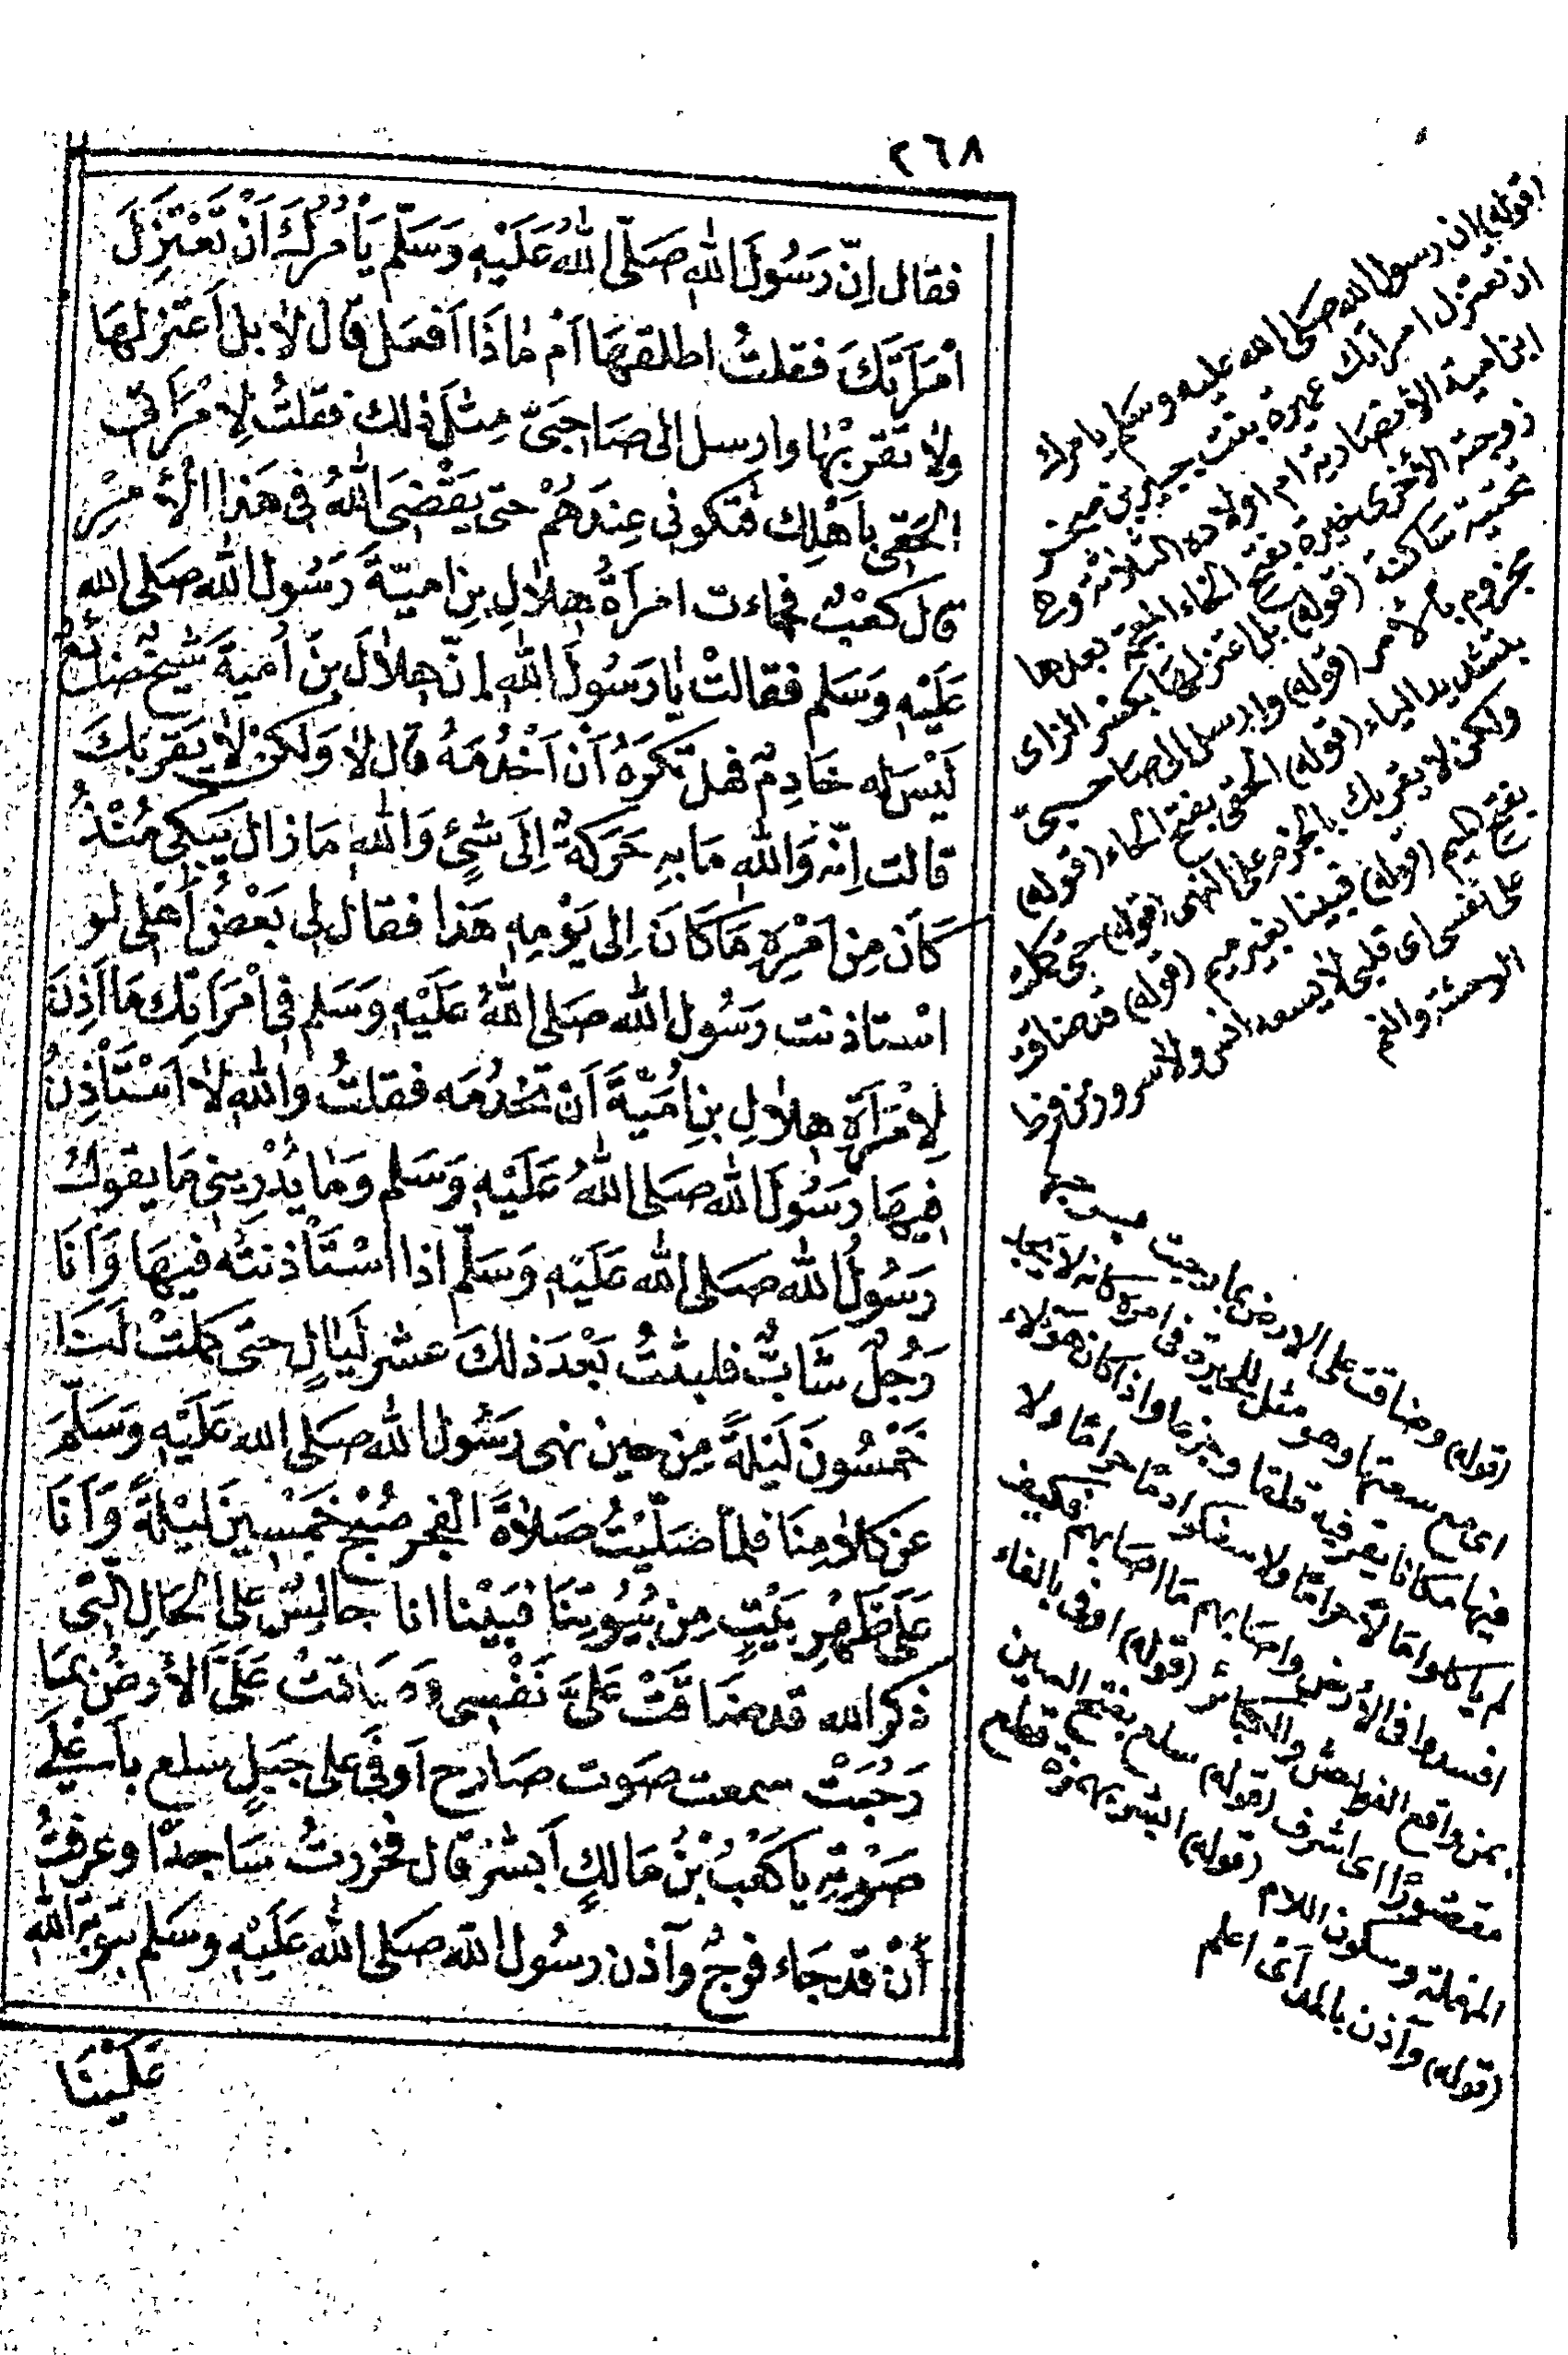 ٢٦٨
فقال اِنّ رَسُولَ اللهِ صَلّى اللهُ عَلَيْهِ وَسَلّم يَأْمُرُكَ اَنْ تَعْتَزِلَ
امْرَأَتَكَ فقلتُ اطلقهَا اَمْ مٰاذَا اَفعَل قال لا بل اَعتَزِلهَا
ولا تقربْهٰا وارسل الى صَاحِبَىَّ مِثلَ ذلك فقلتُ لِامْرَأتى
الحَقى بِاَهْلِك فتكونى عِندَهُمْ حتى يَقْضِىَ اللهُ فى هَذا الْأَمْرِ
قال كعْبٌ فجاءت امْرَأةُ هِلالِ بنِ اميّةَ رَسُول الله صَلى الله
عَلَيْهِ وَسَلم فقالتْ يٰا رَسُولَ اللهِ اِنّ هِلالَ بنَ اُميةَ شيخٌ ضائعٌ
لَيْسَ له خَادِمٌ فهل تكرَهُ أن اَخْدُمَهُ قال لا وَلكن لا يقربكَ
قالت اِنّه وَاللهِ مَا بهِ حَركةٌ اِلى شَئٍ وَاللهِ مَا زال يَبكِى مُنْذُ
كَانَ مِن امْرِهِ مَا كَانَ اِلى يَوْمِهِ هَذا فقال لى بَعْضُ أهْلى لو
اسْتاذنت رَسُول الله صَلى اللهُ عَلَيْهِ وَسَلم فى امْرَأتِك مَا اَذِنَ
لِامْرَأةِ هِلالِ بنِ اُمَيّةَ أَنْ تَخْدُمَه فقلتُ واللهِ لا اَسْتَأذِنُ
فِيهَا رَسُولَ الله صَلى اللهُ عَلَيْهِ وَسَلم وَمٰا يُدْرِينى مَا يقولُ
رَسُولُ الله صَلى الله عَلَيْهِ وَسَلّم اذا اسْتَأذنتُه فيهَا وَأنَا
رَجُلٌ شَابٌّ فلبثتُ بَعْدَ ذلكَ عشر لَيَالٍ حتى كملتْ لَنَا
خَمْسُونَ لَيْلةً مِن حين نهى رَسُول الله صَلى الله عَلَيْهِ وَسَلّمَ
عن كلامِنَا فلمّا صَلّيتُ صَلاةَ الفجر صُبْحَ خَمْسِينَ لَيْلةً وَأنَا
عَلَى ظَهْرِ بَيْتٍ مِن بُيُوتِنَا فبَيْنا انا جالِسٌ عَلى الحَالِ الّتى
ذكر الله قد ضَاقَتْ عَلىَّ نَفْسِى وَضَاقتْ عَلَىَّ الأرضُ بمَا
رَحُبَتْ سمعت صَوت صَارخ اَوفى على جَبَلِ سلع بأعلَى
صَوْتِهِ يا كَعْبُ بْنُ مَالكٍ اَبشرْ قال فخررتُ سَاجدًا وعرفتُ
أَنْ قد جَاء فرجٌ وآذن رسُول الله صَلى الله عَلَيْهِ وسَلم بتوبة الله
عَلَيْنَا
(قوله) ان رسول الله صلى الله عليه وسلم يامرك
ان تعتزل امراتك عميرة بنت جبير بن صخر
ابن امية الانصارية ام اولاده الثلاثة او
زوجته الاخرى خيرة بفتح الخاء المعجمة بعدها
تحتية ساكنة (قوله) بل اعتزلها بكسر الزاى
مجزوم بالامر (قوله) وارسل الى صاحبىّ
بتشديد الياء (قوله) الحقى بفتح الحاء (قوله)
ولكن لا يقربك بالجزم على النهى (قوله) حتى كملت
بفتح الميم (قوله) فبينا بغير ميم (قوله) قد ضاقت
على نفسى اى قلبى لا يسعه انس ولا سرور من فرط
الوحشة والغم
(قوله) وضاقت على الارض بما رحبت
اى مع سعتها وهو مثل للحيرة فى امره كانه لا يجد
فيها مكانا يقر فيه قلقا وجزعا واذا كان هؤلاء
لم ياكلوا مالا حراما ولا سفكوا دما حراما ولا
افسدوا فى الارض واصابهم ما اصابهم فكيف
بمن واقع الفواحش والكبائر (قوله) اوفى بالفاء
مقصورا اى اشرف (قوله) سلع بفتح السين
المهملة وسكون اللام (قوله) ابشر بهمزة قطع
(قوله) وآذن بالمد اى اعلم